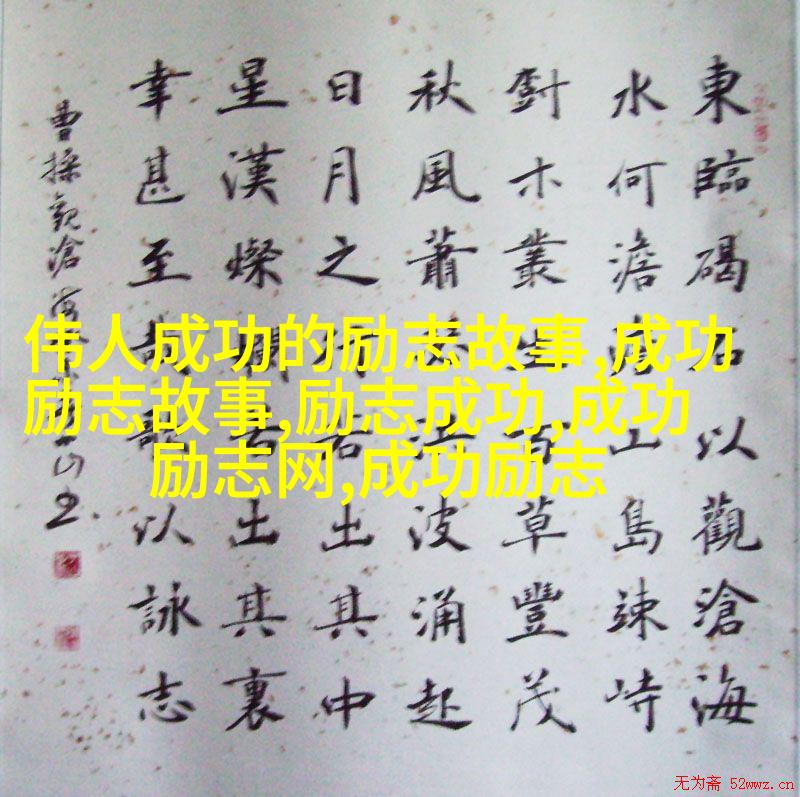 東臨碣石以觀滄海
水何澹澹山島竦峙
木叢生百草豐茂
秋風蕭瑟洪波涌起
日月之行若出其中
星漢燦爛若出其裏
幸甚至哉歌以詠志
曹操觀滄海
伟人成功的励志故事,成功
励志故事,励志成功,成功
励志网,成功励志
无为斋 52wwz.cn